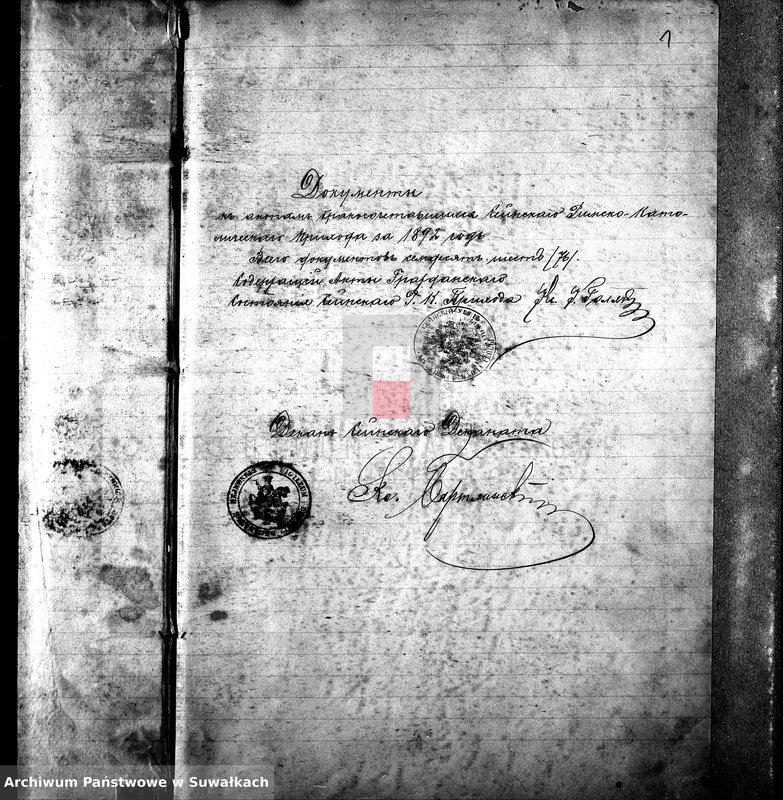 1
Документы
къ актамъ бракосочетавшихся Сейнскаго Римско-Като-
лическаго Прихода за 1892 годъ
Всего документовъ семьдесятъ шесть /76/.
Содержащій Акты Гражданскаго
Состоянія Сейнскаго Р. К. Прихода Кс.
Деканъ Сейнскаго Деканата
Кс.
Archiwum Państwowe w Suwałkach